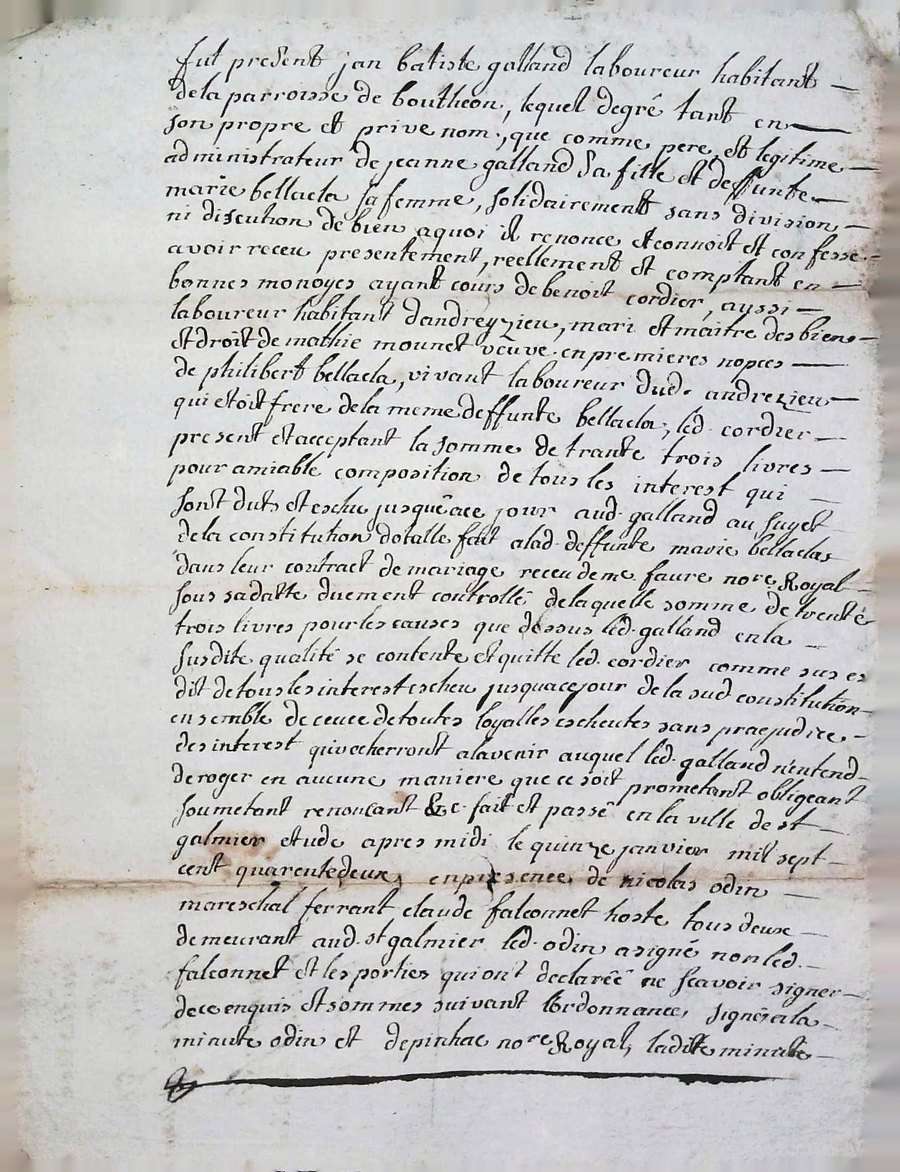 fut present jan batiste galland laboureur habitant
dela parroisse de boutheon, lequel degré tant en
son propre et privé nom, que comme pere, et legitime
administrateur de jeanne galland sa fille et deffunte
marie bellacla sa femme, solidairement sans division
ni discution de bien aquoi il renonce et connoit et confesse
avoir receu presentement, reellement et comptant en
bonnes monoyes ayant cours de benoit cordier, aussi
laboureur habitant d'andrezieu, mari et maitre des biens
et droit de mathie mounet veuve en premieres nopces
de philibert bellacla, vivant laboureur dud. andrezieu
qui etoit frere dela meme deffunte bellacla, led. cordier
present et acceptant la somme de trante trois livres
pour amiable composition de tous les interest qui
sont duts et eschu jusquéace jour aud. galland au sujet
dela constitution dotalle fait alad. deffunte marie bellacla
dans leur contract de mariage receu deme faure nore Royal
sous sa datte duement controllé delaquelle somme de trente
trois livres pour les causes que dessus led. galland en la
susdite qualité se contente et quitte led. cordier comme sus es
dit de tous les interest escheu jusquacejour de la sud constitution
ensemble de ceuce de toutes loyalles escheutes sans praejudice
des interest qui echerront alavenir auquel led. galland n'entend
deroger en aucune maniere que ce soit prometant obligeant
soumetant renonçant &c. fait et passé en la ville de st
galmier etude apres midi le quinze janvier mil sept
cent quarentedeux, en presence de nicolas odin
mareschal ferrant claude falconnet hoste tous deux
demeurant aud. st galmier led. odin a signé non led.
falconnet et les porties qui ont declareé ne scavoir signer
dece enquis et sommes suivant l'ordonnance, signés ala
minute odin et depinhac nore Royal, ladite minute